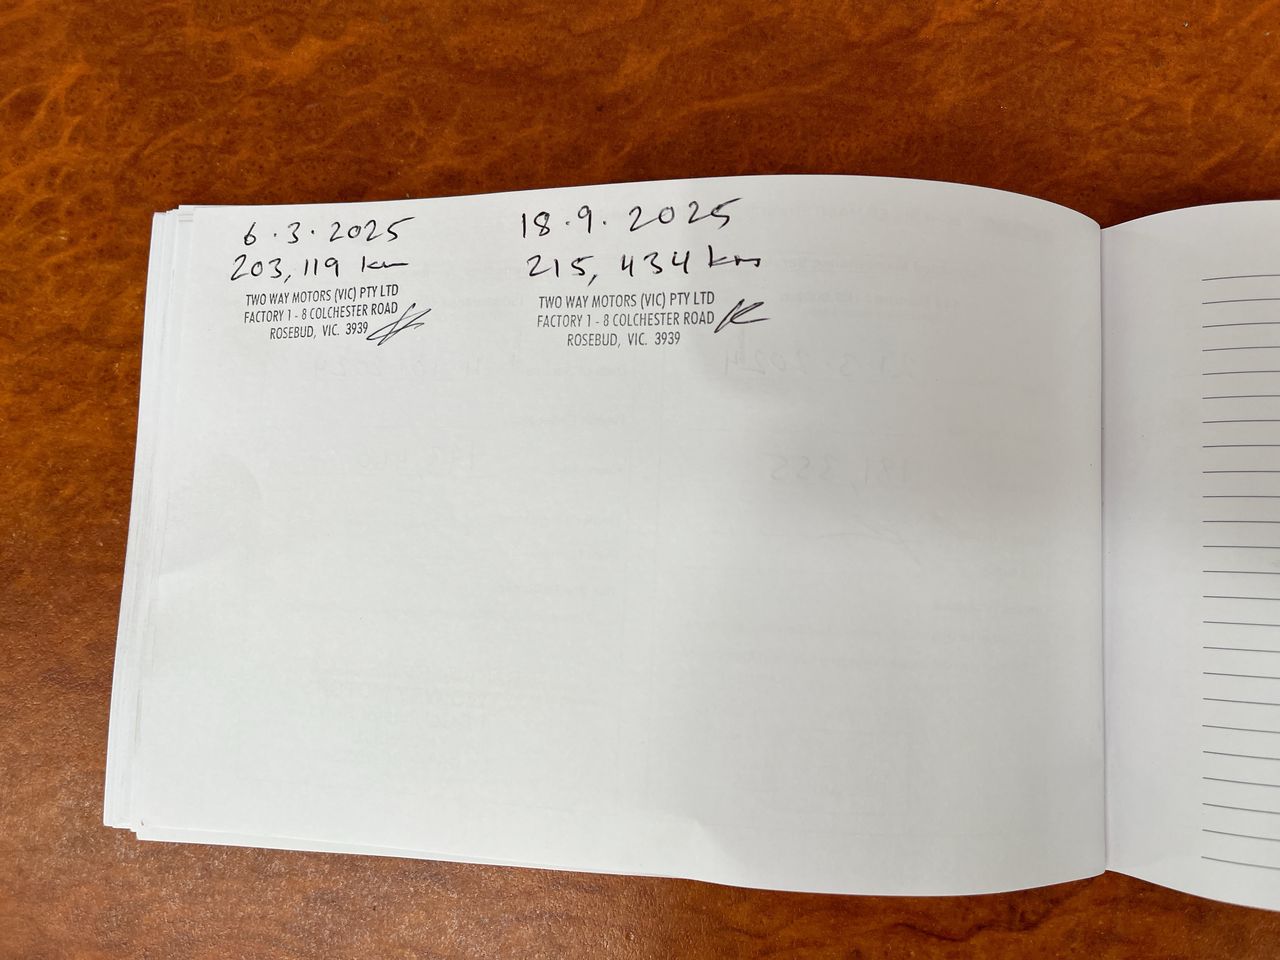 6.3.2025
203,119 km
TWO WAY MOTORS (VIC) PTY LTD
FACTORY 1 - 8 COLCHESTER ROAD
ROSEBUD, VIC. 3939
18.9.2025
215,434 kms
TWO WAY MOTORS (VIC) PTY LTD
FACTORY 1 - 8 COLCHESTER ROAD
ROSEBUD, VIC. 3939